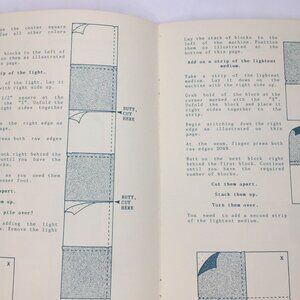 he corner square
or all other colors
blocks to the left of
rip of the light.
of the light. Lay it
ith right side up.
1/2" square at the
the "X". Unfold the
ght sides together
n the right edge as
ram.
ress both raw edges
right behind the
ntil you have the
ocks.
as you need
esser foot
e pile over?
adding the light
. Remove the light
BUTT,
CUT
HERE
BUTT,
CUT
HERE
Lay the stack of blocks to the left
of the machine. Position
them as illustrated at the
bottom of this page.
Add on a strip of the lightest
medium.
Take a strip of the lightest
medium. Lay it down on the
machine with the right side up.
Grab hold of the block at the
corner marked with the "X".
Unfold the block and place it
right sides together to the
strip.
Begin stitching down the right
edge as illustrated on this
page.
At the seam, finger press both
raw edges DOWN.
Butt on the next block right
behind the first block. Continue
until you have the required
number of blocks.
Cut them apart.
Stack them up.
Turn them over.
You need to add a second strip
of the lightest medium.
X
X